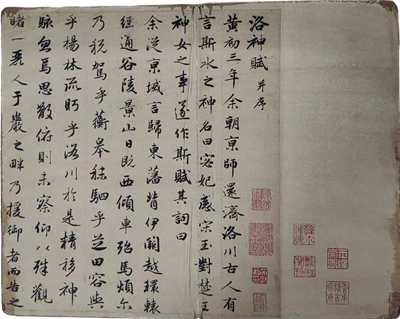 洛神賦 并序
黄初三年余朝京師還濟洛川古人有
言斯水之神名曰宓妃感宋玉對楚王
神女之事遂作斯賦其詞曰
余從京域言歸東藩背伊闕越轘轅
經通谷陵景山日既西傾車殆馬煩尔
乃税駕乎蘅皋秣駟乎芝田容與
乎楊林流眄乎洛川於是精移神
駭忽焉思散俯則未察仰以殊觀
睹一麗人于巖之畔乃援御者而告之